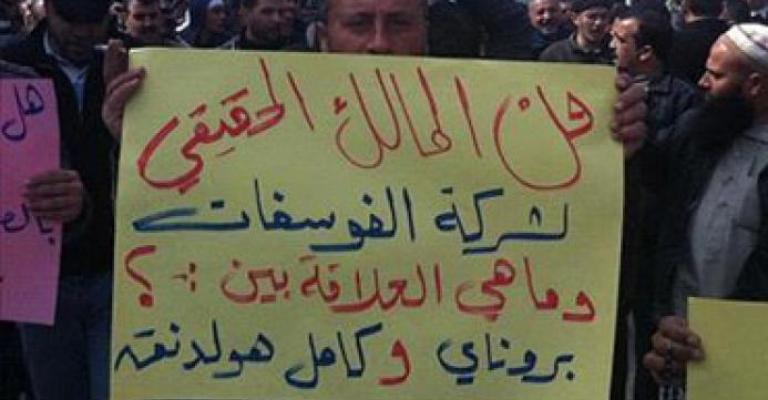 من المالك الحقيقي
لشركة الفوسفات
وماهي العلاقة بين :- ؟
بروناي وكامل هولدنغ
هل